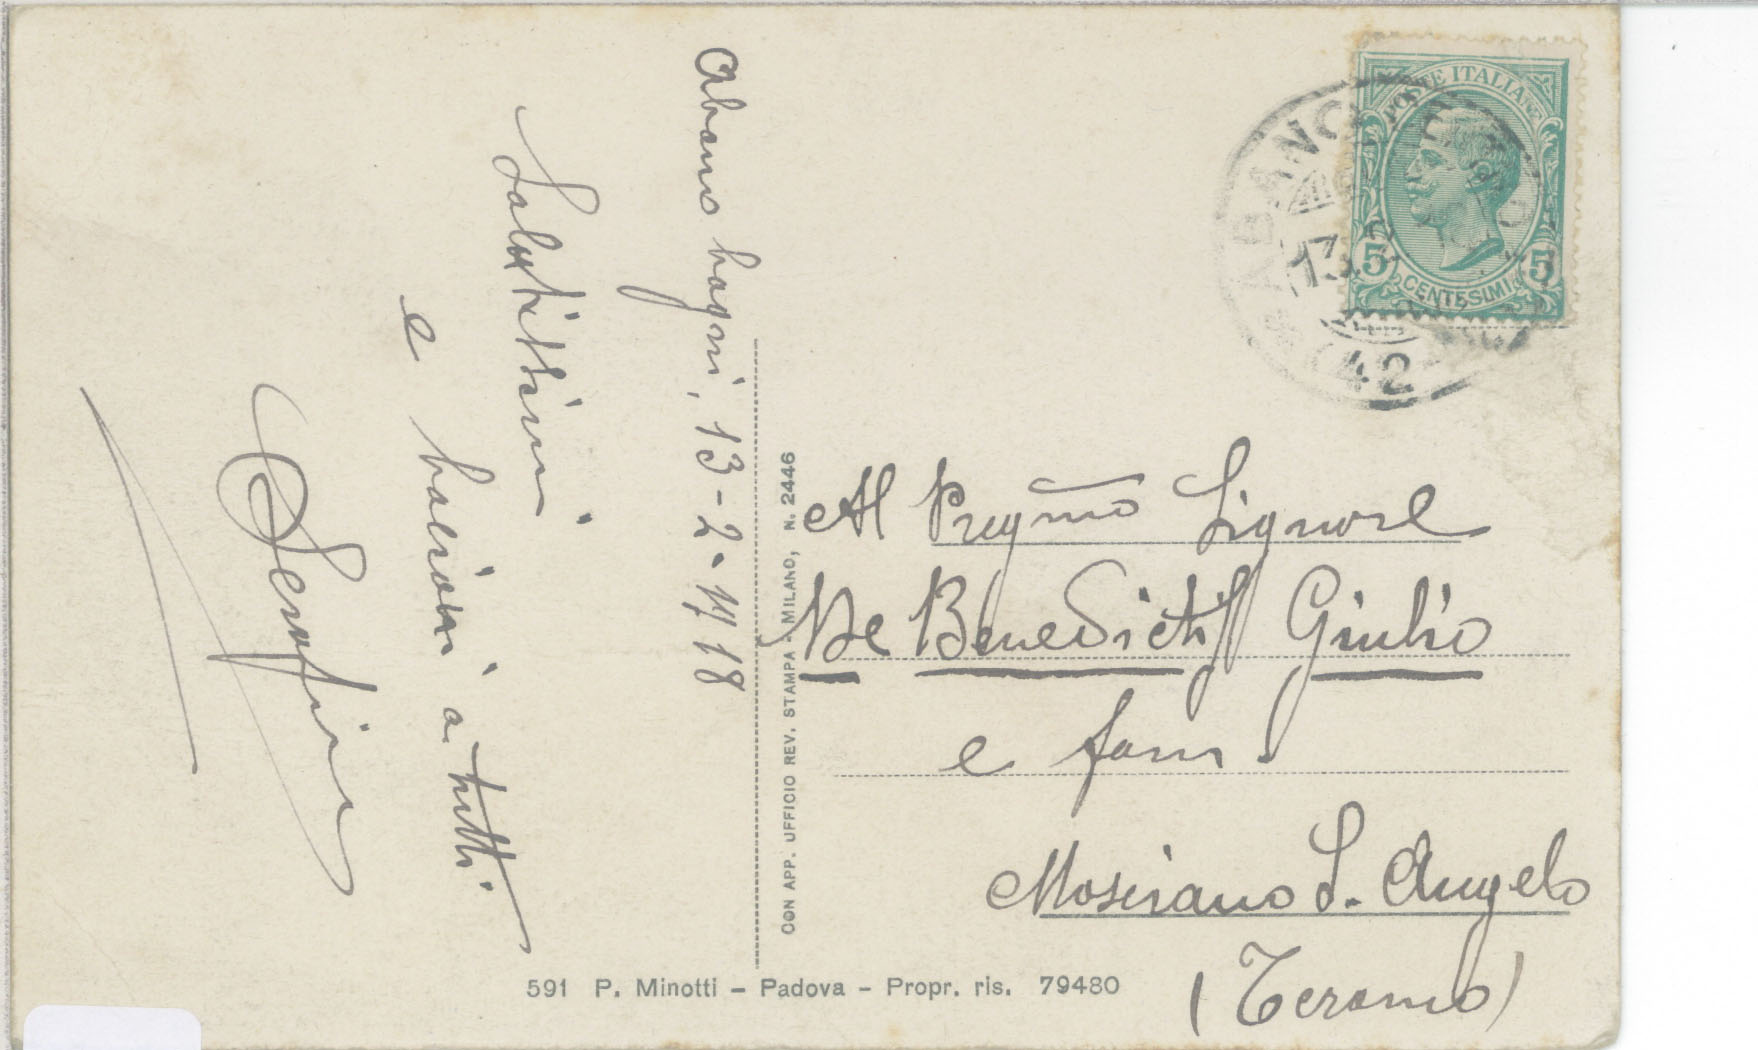 Abano bagni, 13-2-1918
Salutissimi
e bacioni a tutti
Serafini
Al Preg.mo Signore
De Benedictis Giulio
e fam.
Mosciano S. Angelo
(Teramo)
POSTE ITALIANE
5 CENTESIMI 5
ABANO
13.2
42
CON APP. UFFICIO REV. STAMPA - MILANO, N. 2446
591 P. Minotti – Padova – Propr. ris. 79480